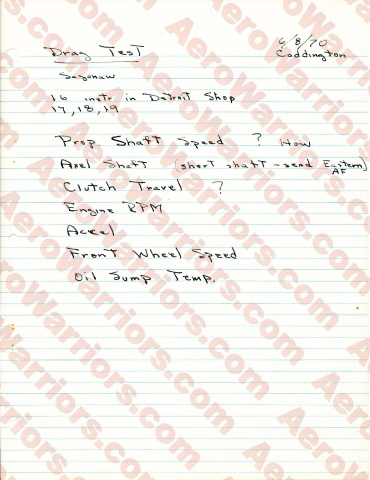 6/8/70
Drag Test
Coddington
Sagonaw
16 instr in Detroit Shop
17, 18, 19
Prop Shaft Speed ? How
Axel Shaft (short shaft - send Eastern)
AF
Clutch Travel ?
Engine RPM
Accel
Front Wheel Speed
Oil Sump Temp.
AeroWarriors.com